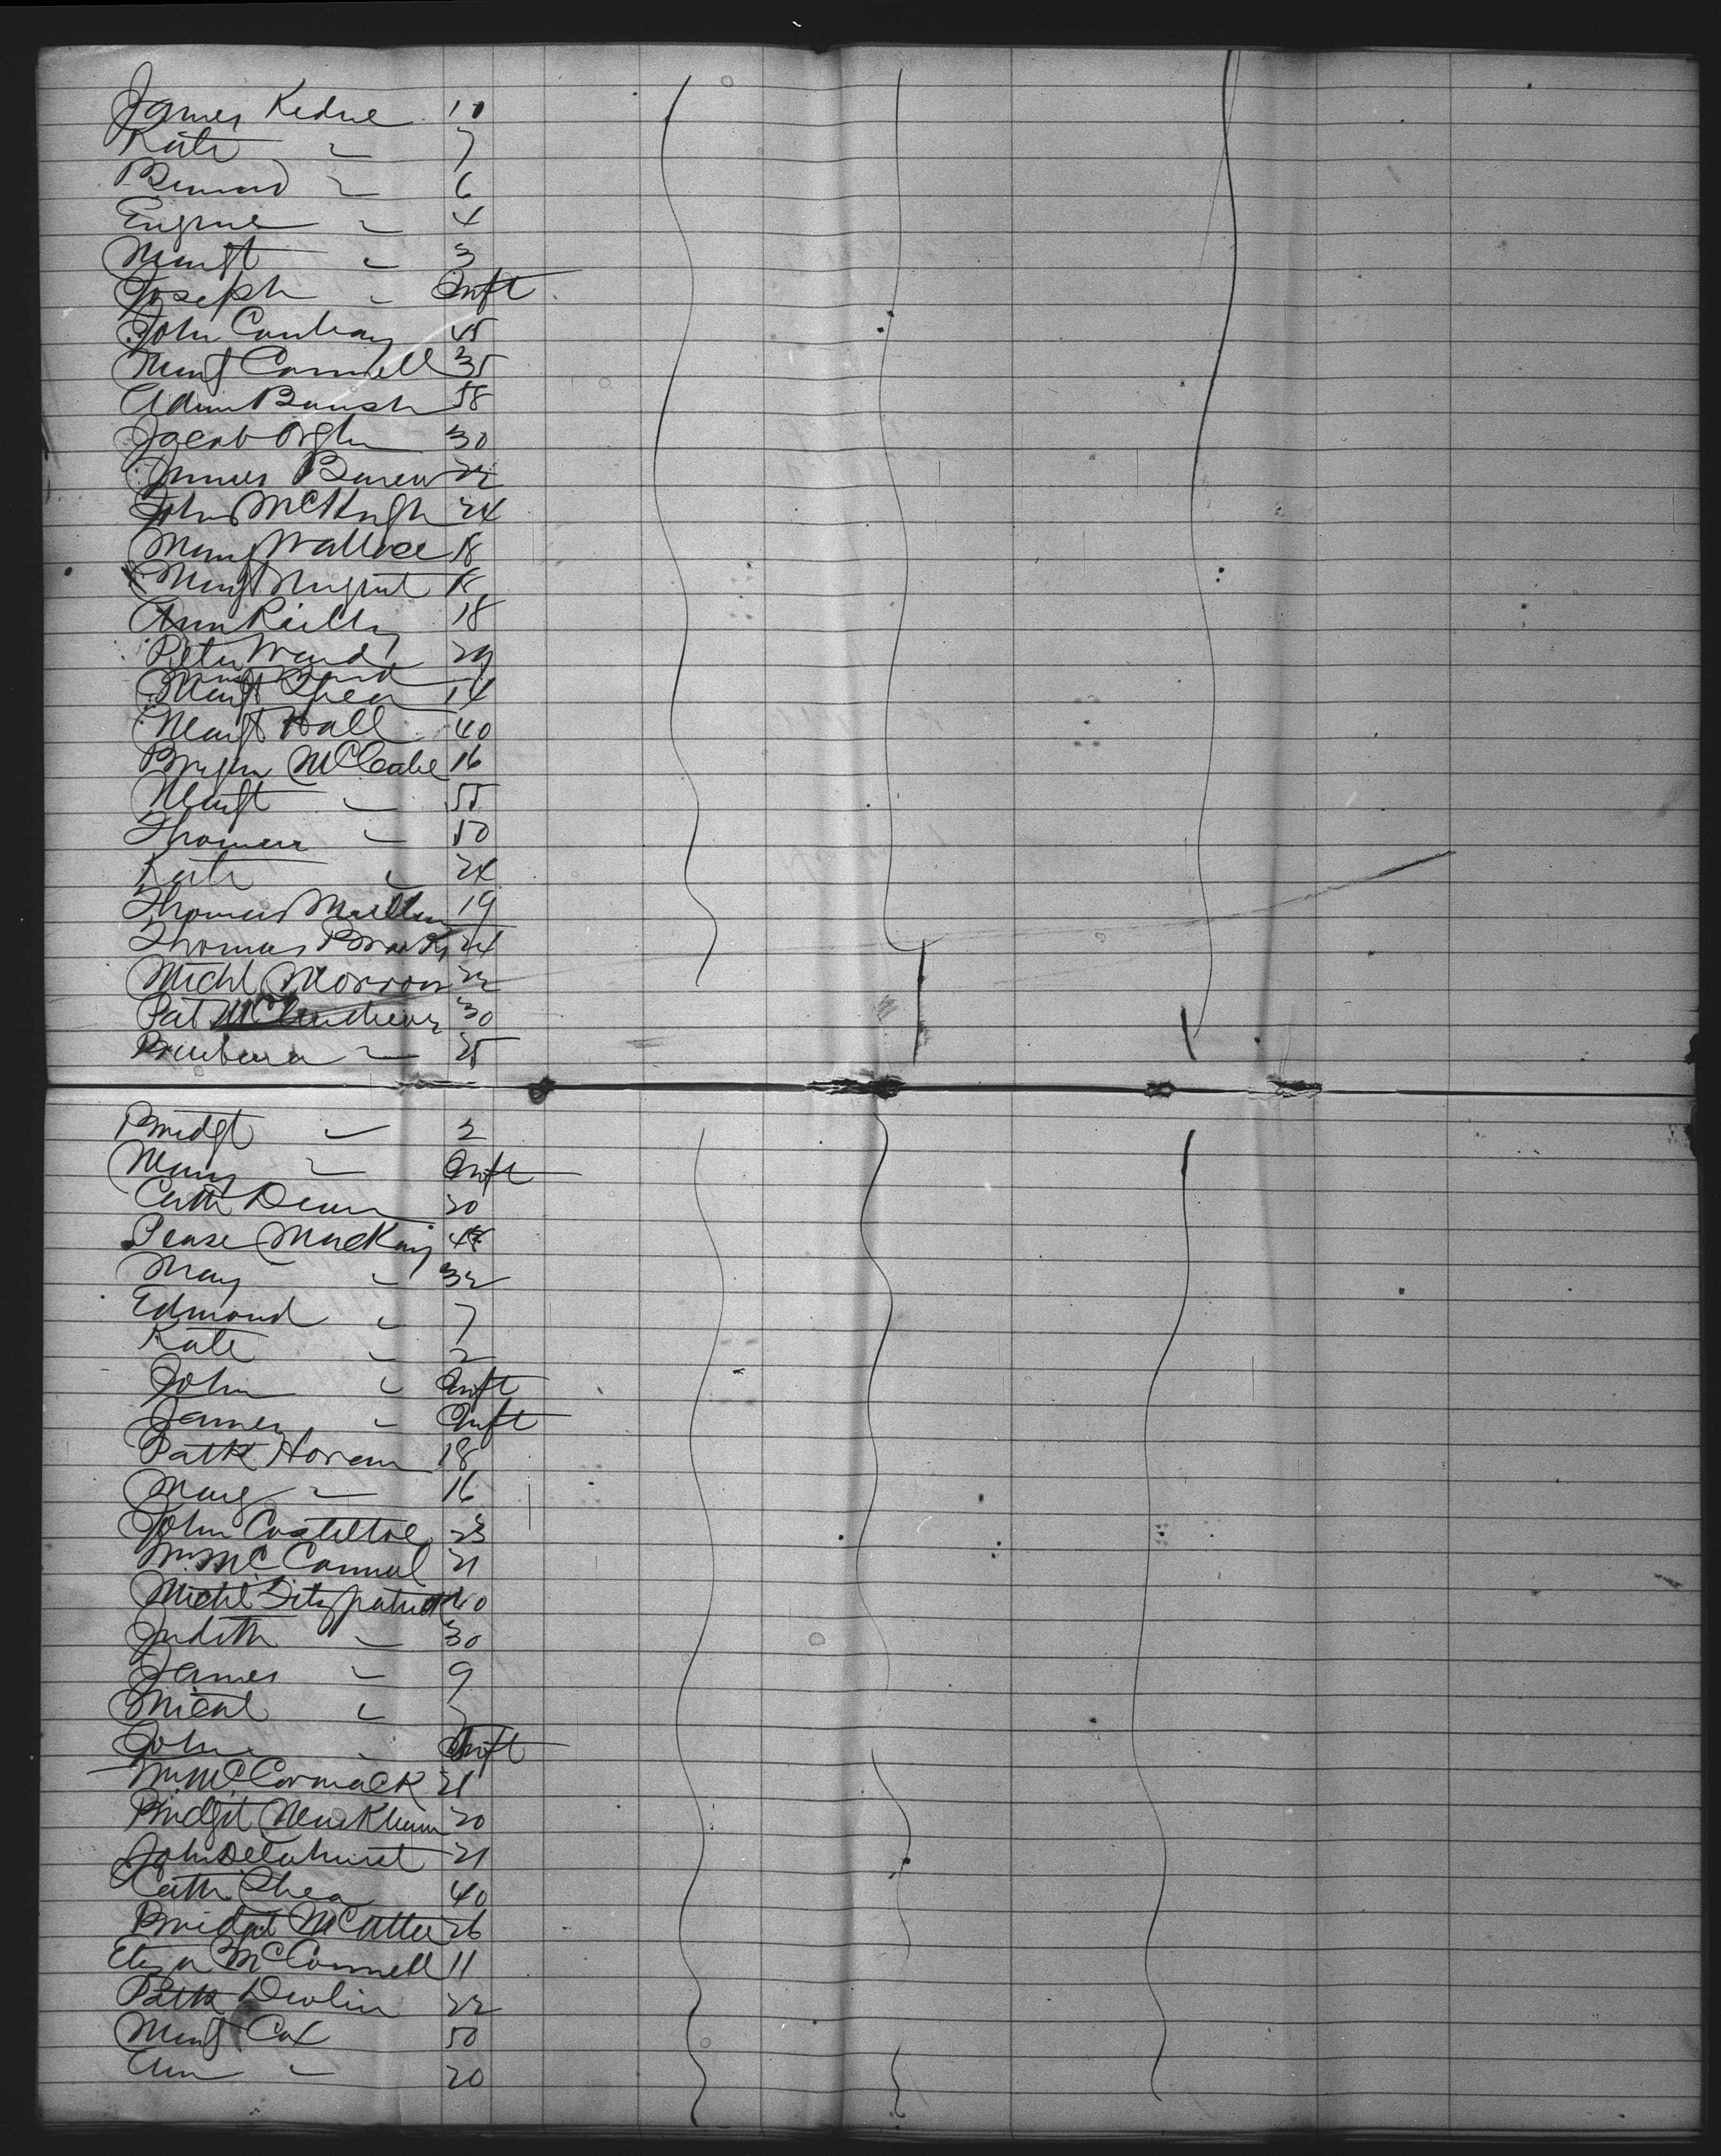 James Kedne 10
Kate " 7
Bernard " 6
Eugene " 4
Margt " 3
Joseph " Inft
John Conway 45
Margt Connell 35
Adam Baush 58
Jacob 30
James 22
John McHugh 24
Mary Wallace 18
Margt Nugent 18
Ann Reilly 18
Peter Ward 29
Margt Shea 14
Margt Hall 40
Bryan McCabe 16
Margt " 55
Thomas " 50
Kate " 24
Thomas Mullen 19
Thomas 24
Michl Morron 22
Pat McAndrew 30
Barbara " 25
Bridgt " 2
Mary " Inft
Cath Dean 20
Pease MacKay
May " 32
Edmond " 7
Kate " 2
John " Inft
James " Inft
Patk Horan 18
Marg " 16
John 23
Wm McConnel 21
Michl Fitzpatrick 40
Judith " 30
James " 9
Mical "
John " Inft
Wm McCormack 21
Bridgit 20
John Delahunt 21
Cath Shea 40
Bridgt McAttee 26
Eliza McConnell 11
Patk Devlin 22
Margt Cox 50
Ann " 20